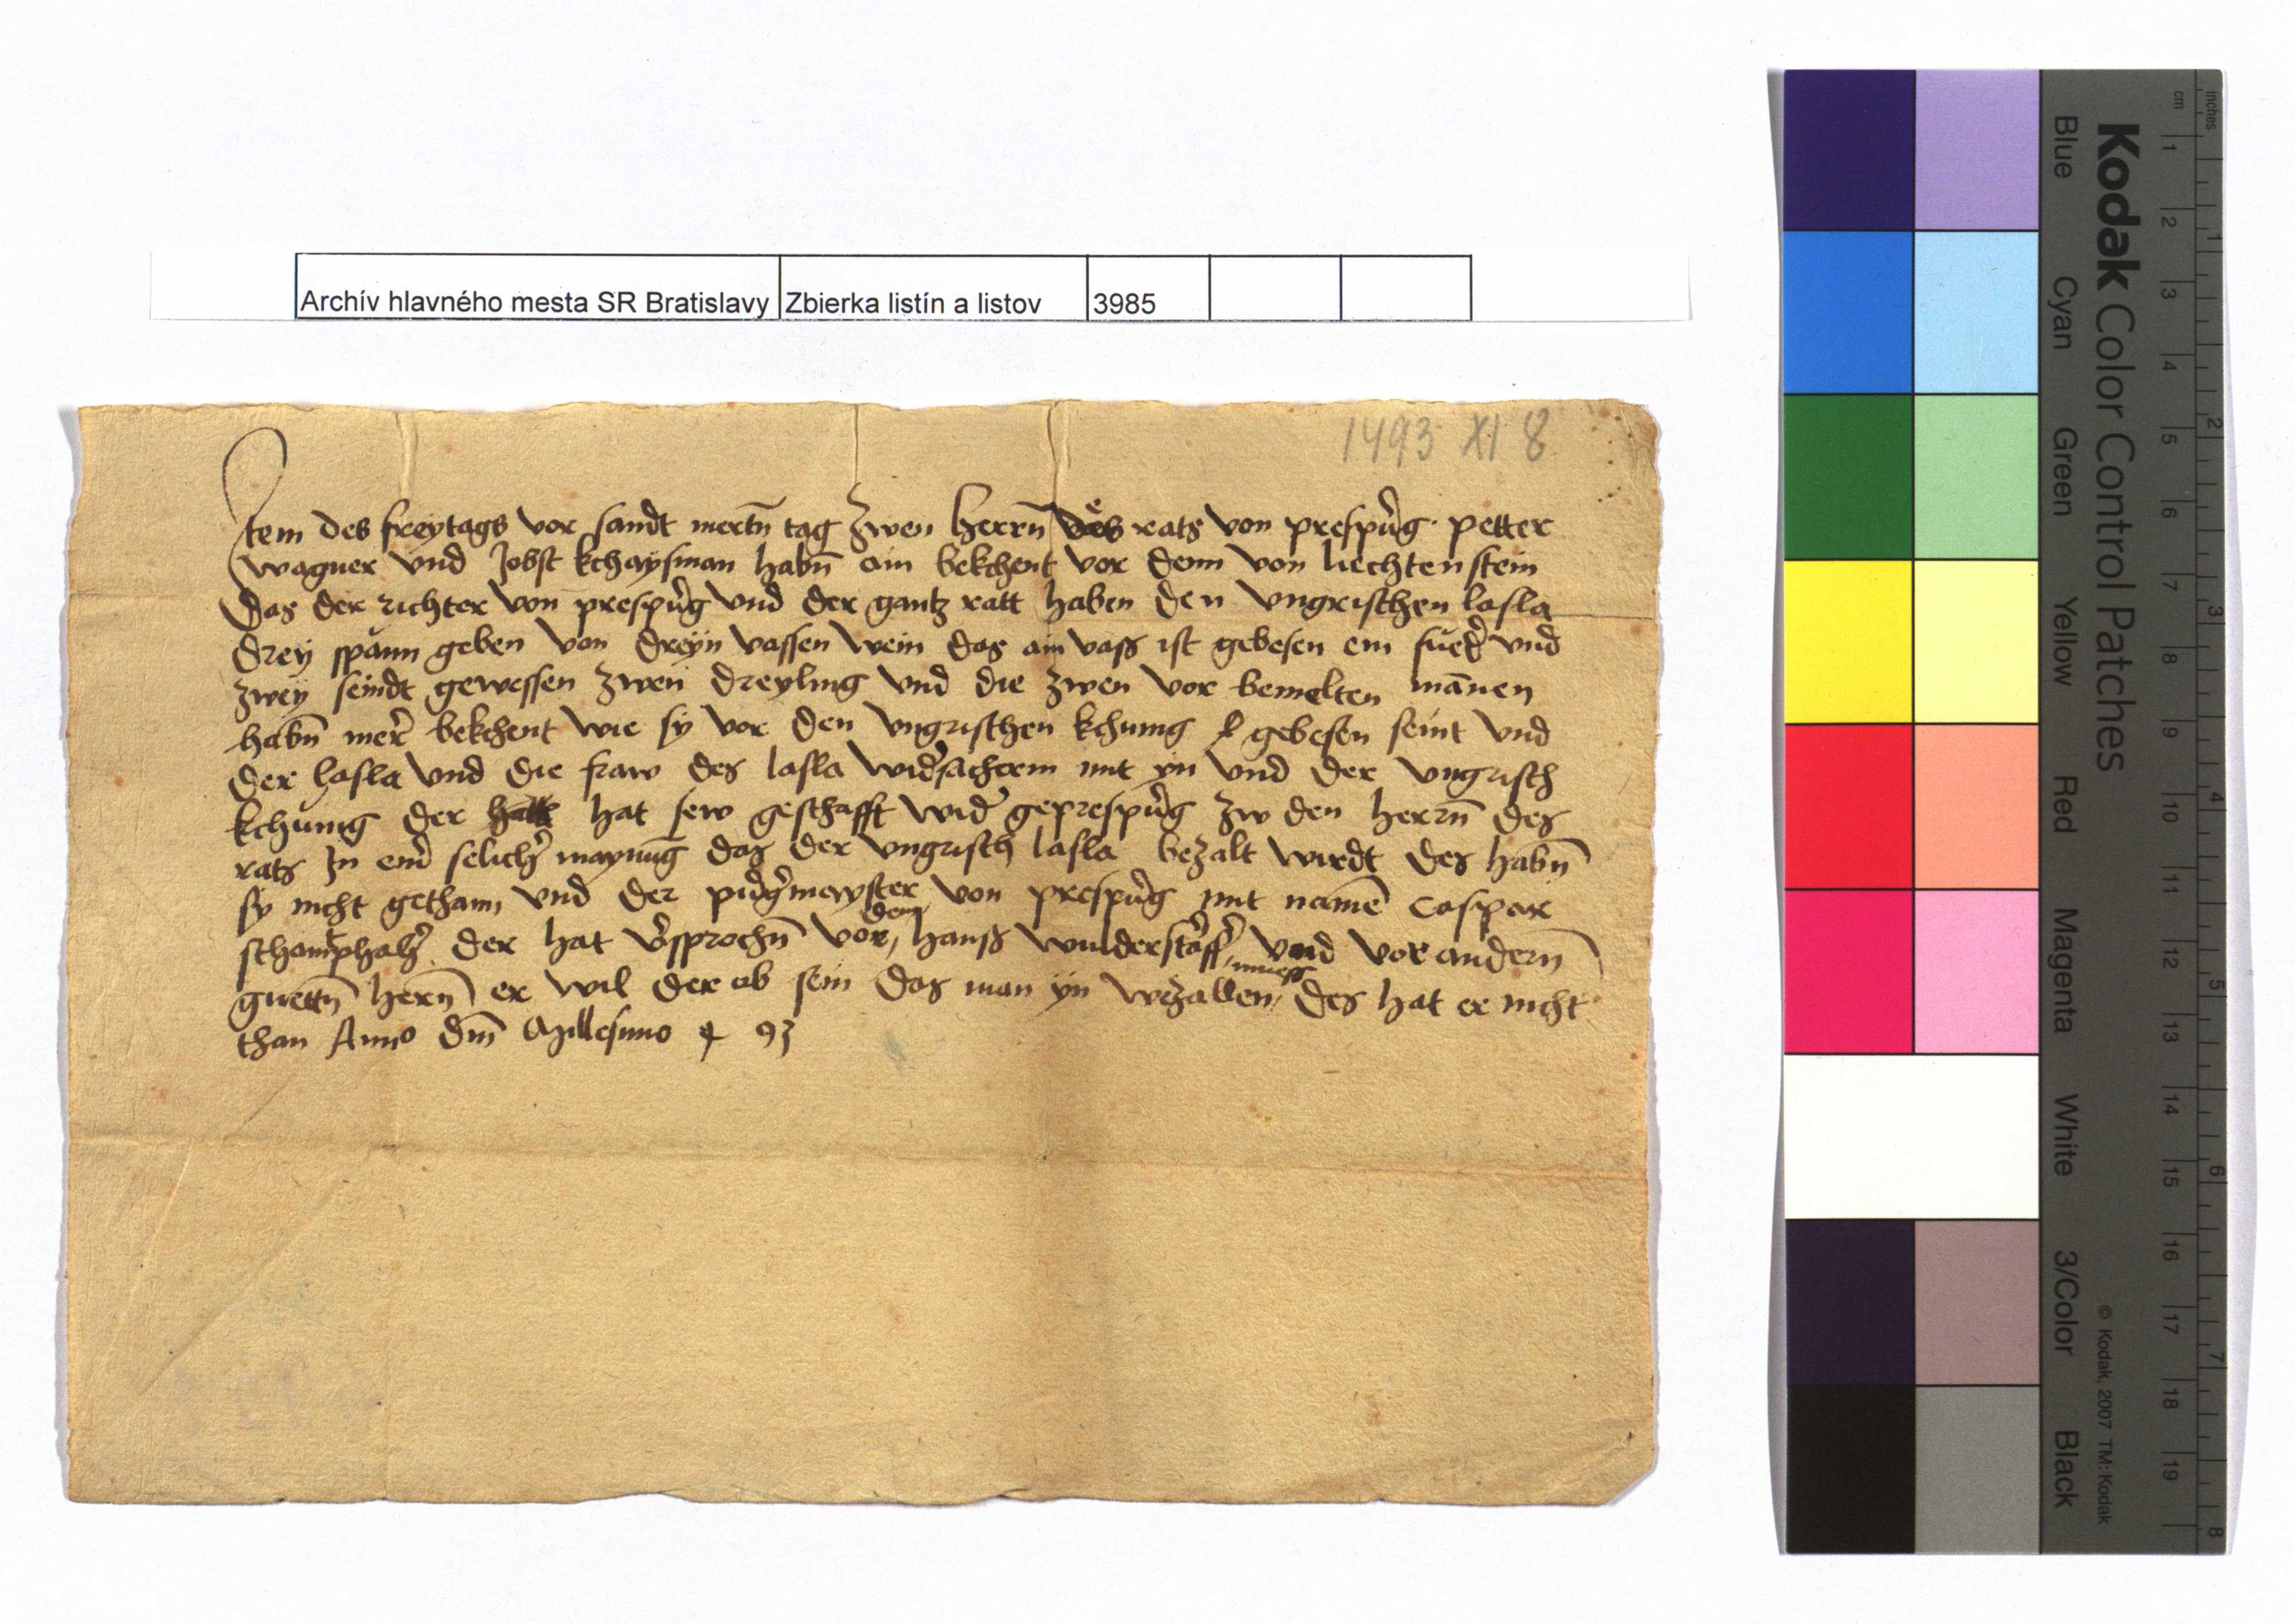 Archív hlavného mesta SR Bratislavy Zbierka listín a listov 3985
1493 XI 8
Item des freytags vor sandt mertn̄ tag zwen herrn̄ des rats von prespůrg petter
wagner vnd Jobst kchaysman habn̄ ain bekchent vor denn von liechtenstein
das der richter von prespůrg vnd der gantz ratt haben den vngrischen lasla
drey spänn geben von dreyn vassen wein das ain vass ist gebesen ein fued' vnd
zwey seindt gewessen zwen dreyling vnd die zwen vor bemelten mānen
habn̄ mer bekchent wie sy vor den vngrischen kchunig gebesen seint vnd
der lasla vnd die fraw des lasla wid'sacherin mit yn vnd der vngrisch
kchunig der hat sew geschafft wid' geprespůrg zw den herrn̄ des
rats In selich' maynūg das der vngrisch lasla bezalt wirdt des habn̄
sy nicht gethann vnd der von prespůrg mit namē Caspar
der hat v'sprochn̄ vor dem hanss vnd vor andern̄
guettn̄ hern̄ er wil der ob sein das man yn wezallen muess des hat er nicht
than Anno dm̄ Millesimo 4 93
Kodak Color Control Patches
Blue Cyan Green Yellow Red Magenta White 3/Color Black
© Kodak, 2007 TM: Kodak
cm 1 2 3 4 5 6 7 8 9 10 11 12 13 14 15 16 17 18 19
inches 1 2 3 4 5 6 7 8